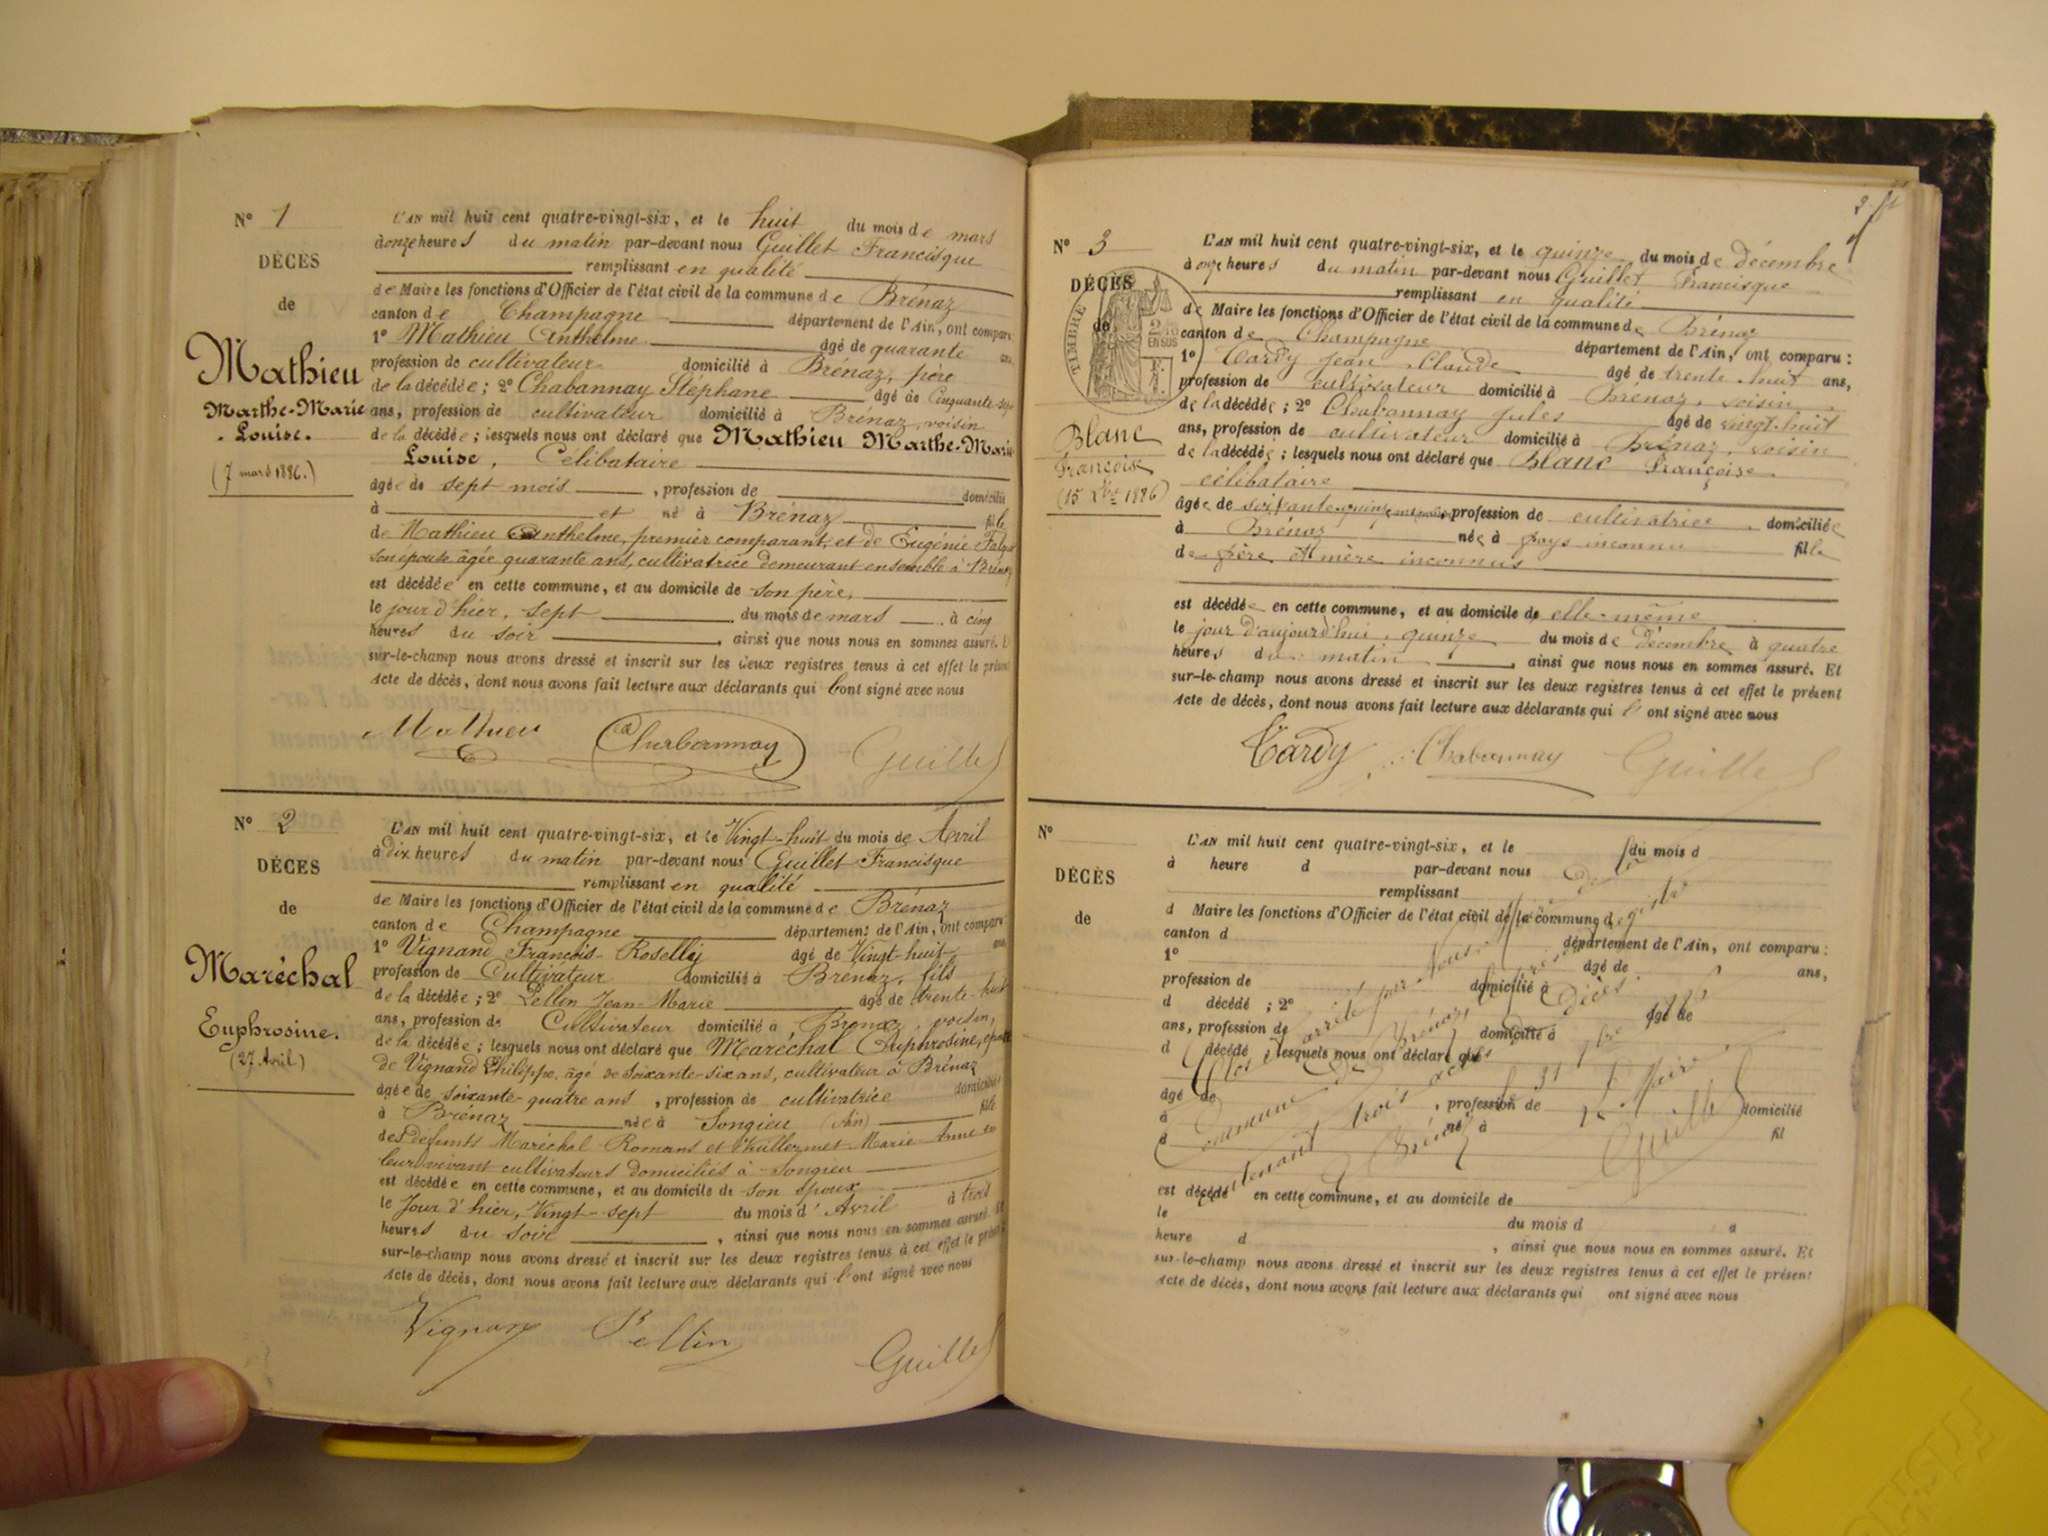 N° 1
DÉCÈS
de
Mathieu
Marthe-Marie
Louise.
(7 mars 1886.)
L'AN mil huit cent quatre-vingt-six, et le huit du mois de mars
à onze heures du matin par-devant nous Guillet Francisque
remplissant en qualité
de Maire les fonctions d'Officier de l'état civil de la commune de Brénaz
canton de Champagne département de l'Ain, ont comparu
1° Mathieu Anthelme âgé de quarante ans,
profession de cultivateur domicilié à Brénaz, père
de la décédée; 2° Chabannay Stephane âgé de cinquante-sept
ans, profession de cultivateur domicilié à Brénaz, voisin
de la décédée; lesquels nous ont déclaré que Mathieu Marthe-Marie
Louise, Célibataire
âgée de sept mois, profession de domicilié
à et né à Brénaz fille
de Mathieu Anthelme, premier comparant, et de Eugénie
son épouse âgée quarante ans, cultivatrice demeurant ensemble à Brénaz
est décédée en cette commune, et au domicile de son père,
le jour d'hier, sept du mois de mars à cinq
heures du soir, ainsi que nous nous en sommes assuré. Et
sur-le-champ nous avons dressé et inscrit sur les deux registres tenus à cet effet le présent
acte de décès, dont nous avons fait lecture aux déclarants qui l'ont signé avec nous
Mathieu Chabannay Guillet
N° 2
DÉCÈS
de
Maréchal
Euphrosine.
(27 Avril)
L'AN mil huit cent quatre-vingt-six, et le Vingt-huit du mois de Avril
à dix heures du matin par-devant nous Guillet Francisque
remplissant en qualité
de Maire les fonctions d'Officier de l'état civil de la commune de Brénaz
canton de Champagne département de l'Ain, ont comparu
1° Vignand François-Roselly âgé de Vingt-huit ans
profession de Cultivateur domicilié à Brénaz, fils
de la décédée; 2° Pellin Jean-Marie âgé de trente-huit
ans, profession de Cultivateur domicilié à Brénaz, voisin,
de la décédée; lesquels nous ont déclaré que Maréchal Euphrosine, épouse
de Vignand Philippe, âgé de Soixante-six ans, cultivateur à Brénaz
âgée de soixante-quatre ans, profession de cultivatrice domiciliée
à Brénaz née à Songieu (Ain) fille
des défunts Maréchal Romans et Vuillermet Marie-Anne de
leur vivant cultivateurs domiciliés à Songieu
est décédée en cette commune, et au domicile de son époux
le Jour d'hier, Vingt-sept du mois d'Avril à trois
heures du soir, ainsi que nous nous en sommes assuré. Et
sur-le-champ nous avons dressé et inscrit sur les deux registres tenus à cet effet le présent
acte de décès, dont nous avons fait lecture aux déclarants qui l'ont signé avec nous
Vignand Pellin Guillet
N° 3
DÉCÈS
de
TIMBRE
EN SUS
Blanc
Françoise
(15 Xbre 1886)
L'AN mil huit cent quatre-vingt-six, et le quinze du mois de décembre
à onze heures du matin par-devant nous Guillet Francisque
remplissant en qualité
de Maire les fonctions d'Officier de l'état civil de la commune de Brénaz
canton de Champagne département de l'Ain, ont comparu :
1° Tardy Jean-Claude âgé de trente-huit ans,
profession de cultivateur domicilié à Brénaz, voisin
de la décédée; 2° Chabannay Jules âgé de vingt-huit
ans, profession de cultivateur domicilié à Brénaz, voisin
de la décédée; lesquels nous ont déclaré que Blanc Françoise
célibataire
âgée de soixante-quinze profession de cultivatrice, domiciliée
à Brénaz née à pays inconnu fille
de père et mère inconnus
est décédée en cette commune, et au domicile de elle-même
le jour d'aujourd'hui, quinze du mois de décembre à quatre
heures du matin, ainsi que nous nous en sommes assuré. Et
sur-le-champ nous avons dressé et inscrit sur les deux registres tenus à cet effet le présent
acte de décès, dont nous avons fait lecture aux déclarants qui l'ont signé avec nous
Tardy Chabannay Guillet
N°
DÉCÈS
de
L'AN mil huit cent quatre-vingt-six, et le du mois d
à heure d par-devant nous
remplissant
d Maire les fonctions d'Officier de l'état civil de la commune d
canton d département de l'Ain, ont comparu :
1° âgé de ans,
profession de domicilié à
d décédé ; 2° âgé de
ans, profession de domicilié à
d décédé ; lesquels nous ont déclaré que
âgé de , profession de domicilié
à né à fil
d
est décédé en cette commune, et au domicile de
le du mois d à
heure d , ainsi que nous nous en sommes assuré. Et
sur-le-champ nous avons dressé et inscrit sur les deux registres tenus à cet effet le présent
acte de décès, dont nous avons fait lecture aux déclarants qui ont signé avec nous
Clos et arrêté par Nous, Maire de la
Commune de Brénaz, le présent registre
contenant trois actes de Décès.
Brénaz
Le Maire
Guillet